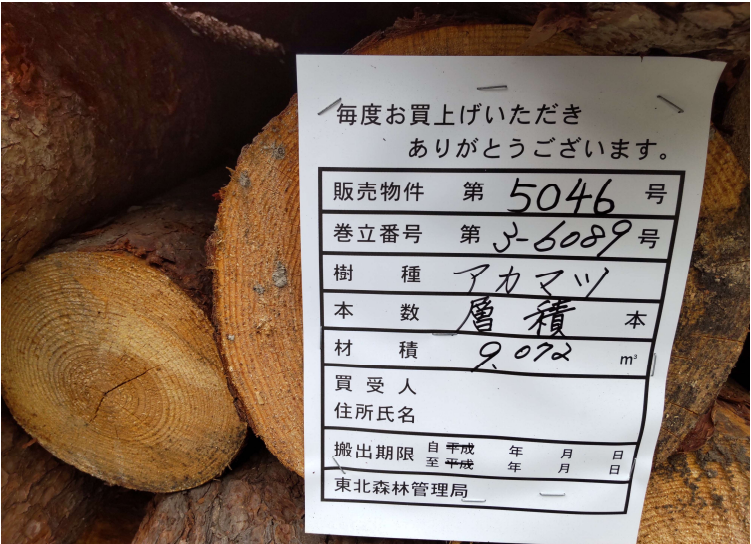 毎度お買上げいただき
ありがとうございます。
販売物件 第 5046 号
巻立番号 第 3-6089 号
樹 種 アカマツ
本 数 層積 本
材 積 9.072 m³
買受人
住所氏名
搬出期限 自 平成 年 月 日
至 平成 年 月 日
東北森林管理局